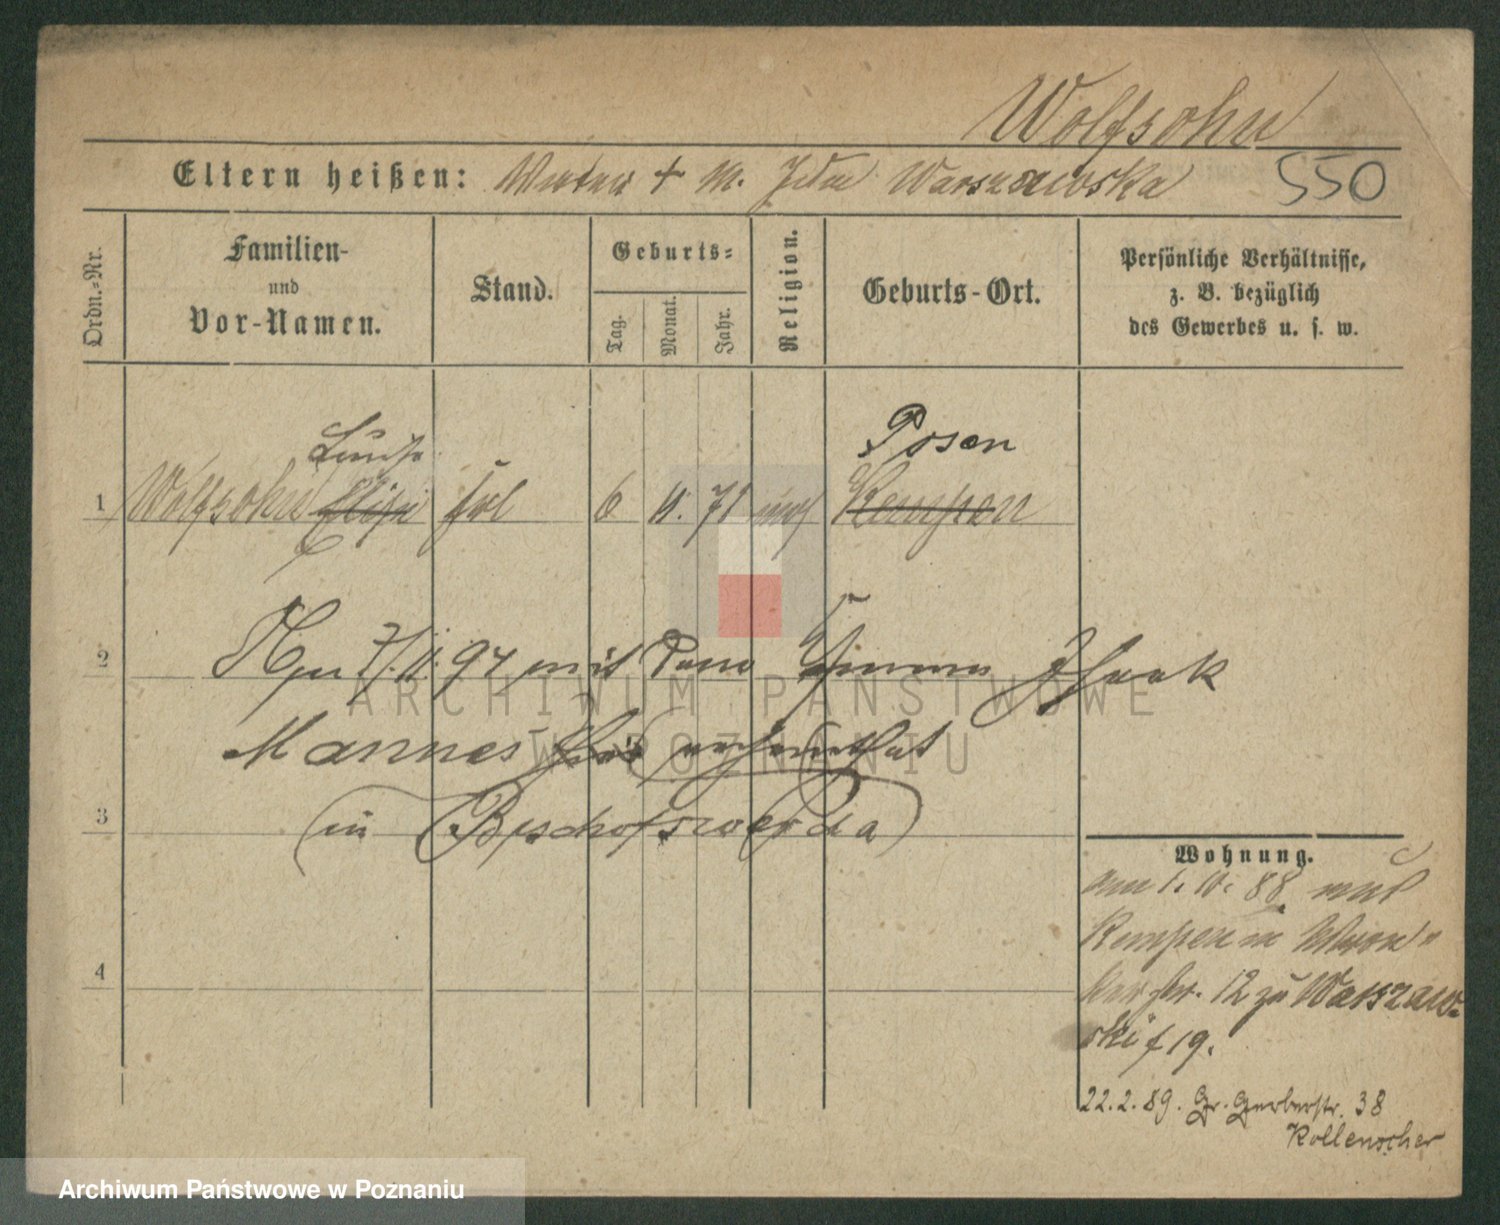 Wolfsohn
550
Eltern heißen: + M. Warszawska
Ordn.-Nr.
Familien-
und
Vor-Namen.
Stand.
Geburts-
Tag.
Monat.
Jahr.
Religion.
Geburts-Ort.
Persönliche Verhältnisse,
z. B. bezüglich
des Gewerbes u. s. w.
Luise
Posen
1 Wolfsohn frl 6 11. 71 mos Kempen
2 7/.11. 97 mit Isaak
Mannes verheirathet
3 (in Bischofswerda)
4
Wohnung.
am 1. 10. 88 aus
Kempen n Wron-
kerstr. 12 zu Warszaw-
ski f 19.
22.2.89. Gr. Gerberstr. 38
Kollenscher
ARCHIWUM PAŃSTWOWE
W POZNANIU
Archiwum Państwowe w Poznaniu